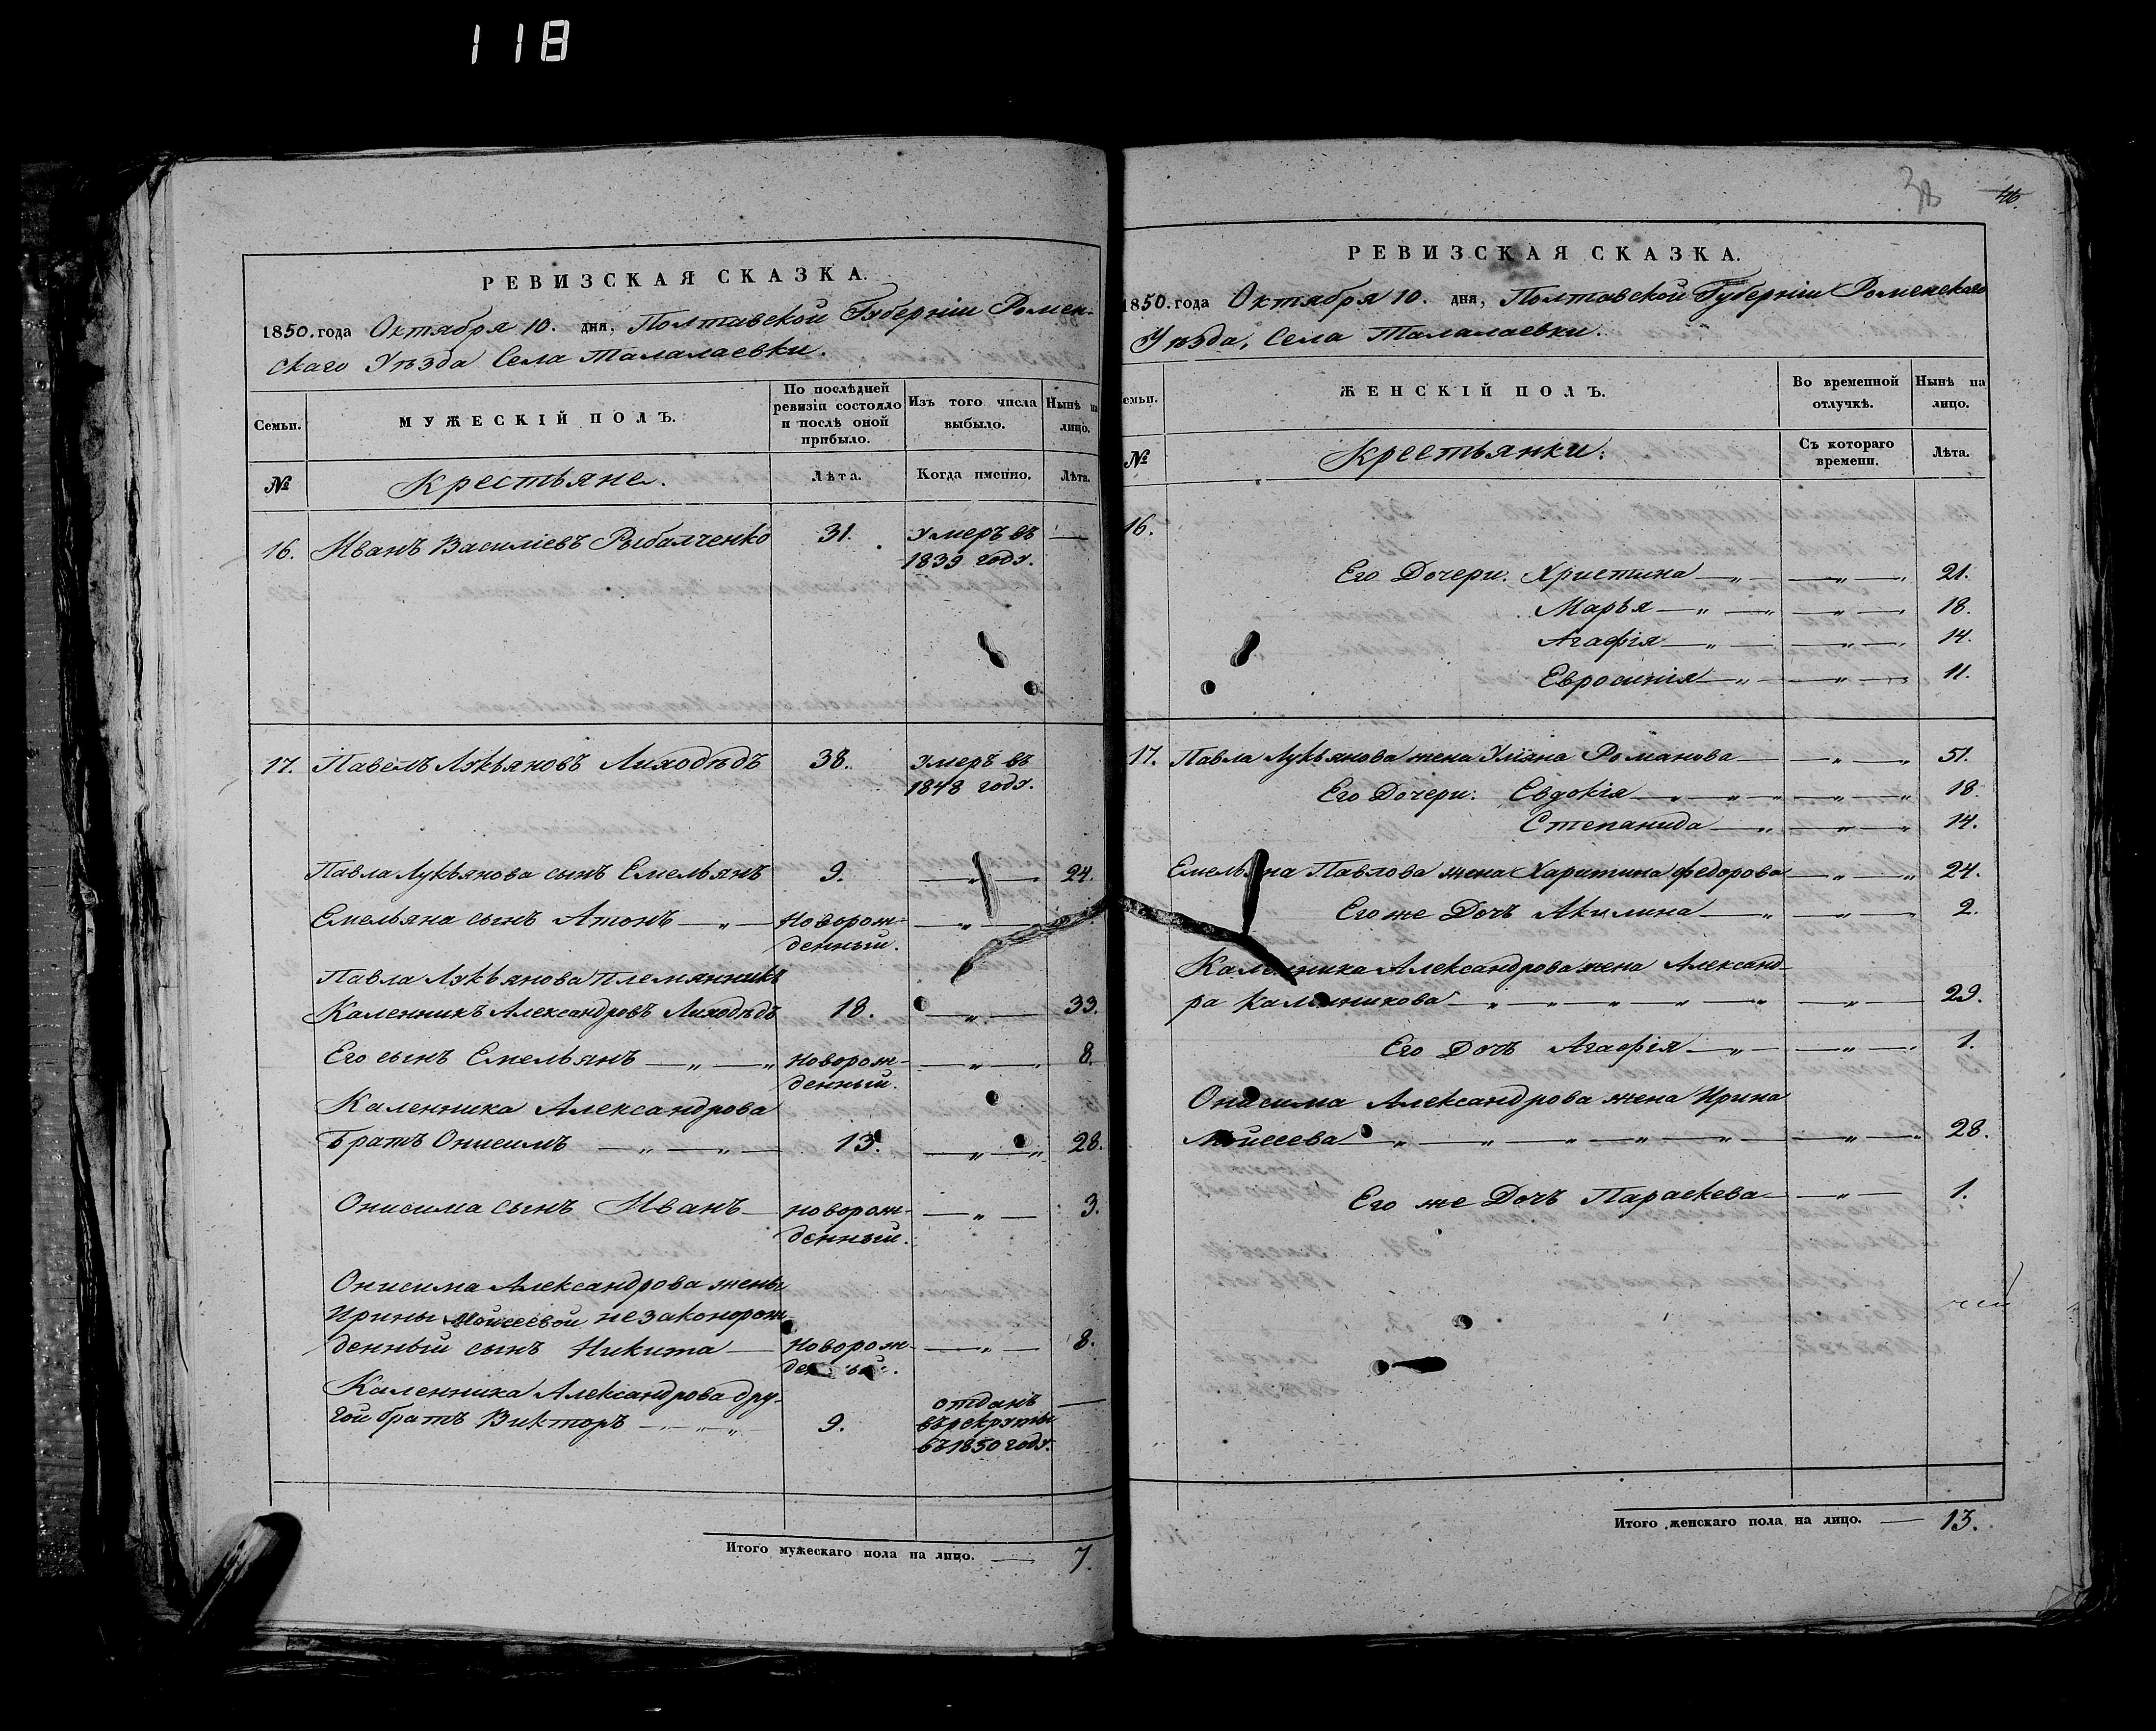 118
РЕВИЗСКАЯ СКАЗКА.
1850. года Октября 10. дня, Полтавской Губерніи Ромен-
скаго Уѣзда Села Талалаевки.
Семьи.
МУЖЕСКІЙ ПОЛЪ.
По послѣдней
ревизіи состояло
и послѣ оной
прибыло.
Изъ того числа
выбыло.
Нынѣ на
лицо.
№
Крестьяне.
Лѣта.
Когда именно.
Лѣта.
16. Иванъ Василіевъ Рыбалченко 31. Умеръ въ —
1839 году.
17. Павелъ Лукьяновъ Лиходѣдъ 38. Умеръ въ
1848 году.
Павла Лукьянова сынъ Емельянъ 9. — „ — 24.
Емельяна сынъ Атонъ — „ — Новорож- — „ —
денный.
Павла Лукьянова племянникъ
Каленникъ Александровъ Лиходѣдъ 18. — „ — 33.
Его сынъ Емельянъ — „ — „ новорож- — „ — 8.
денный.
Каленника Александрова
братъ Онисимъ — „ — „ — 13. — „ — „ 28.
Онисима сынъ Иванъ — новорож- — „ — 3.
денный.
Онисима Александрова жены
Ирины Мойсеевой незаконорож-
денный сынъ Никита — Новорож- — „ — 8.
денный.
Каленника Александрова дру-
гой братъ Викторъ — „ — „ 9. отданъ —
въ рекруты
въ 1850 году.
Итого мужескаго пола на лицо. — 7.
38
46.
РЕВИЗСКАЯ СКАЗКА.
1850. года Октября 10. дня, Полтавской Губерніи Роменскаго
Уѣзда, Села Талалаевки.
семьи.
ЖЕНСКІЙ ПОЛЪ.
Во временной
отлучкѣ.
Нынѣ на
лицо.
№
Крестьянки.
Съ котораго
времени.
Лѣта.
16.
Его Дочери: Христина — „ — — „ — 21.
Марья — „ — „ — „ — 18.
Агафія — „ — — „ — 14.
Евросинія — „ — — „ — 11.
17. Павла Лукьянова жена Уліяна Романова — — „ — „ 51.
Его Дочери: Евдокія — „ — „ — „ — „ — „ 18
Степанида — „ — „ — „ 14.
Емельяна Павлова жена Харитина Федорова — „ — „ 24.
Его же Дочь Акилина — „ — „ — 2.
Каленника Александрова жена Александ-
ра Калинникова — „ — „ — „ — „ — „ — „ — 29.
Его Дочь Агафія — „ — — „ — 1.
Онисима Александрова жена Ирина
Мойсеева — „ — „ — „ — „ — „ — „ — „ 28.
Его же Дочь Параскева — — „ — 1.
Итого женскаго пола на лицо. — 13.